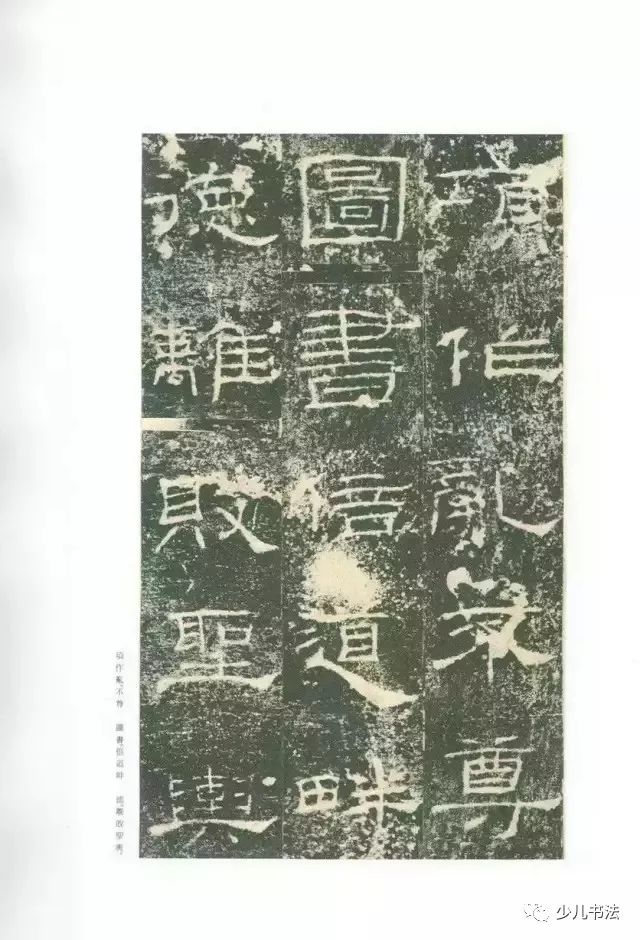 項作亂不尊
圖書倍道畔
德離敗聖輿
項作亂，不尊　圖書，倍道畔　德，離敗聖輿
少儿书法